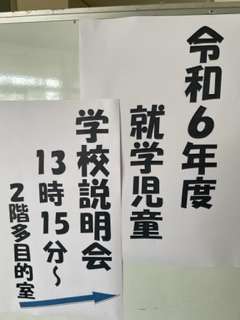 令和6年度
就学児童
学校説明会
13時15分～
2階多目的室